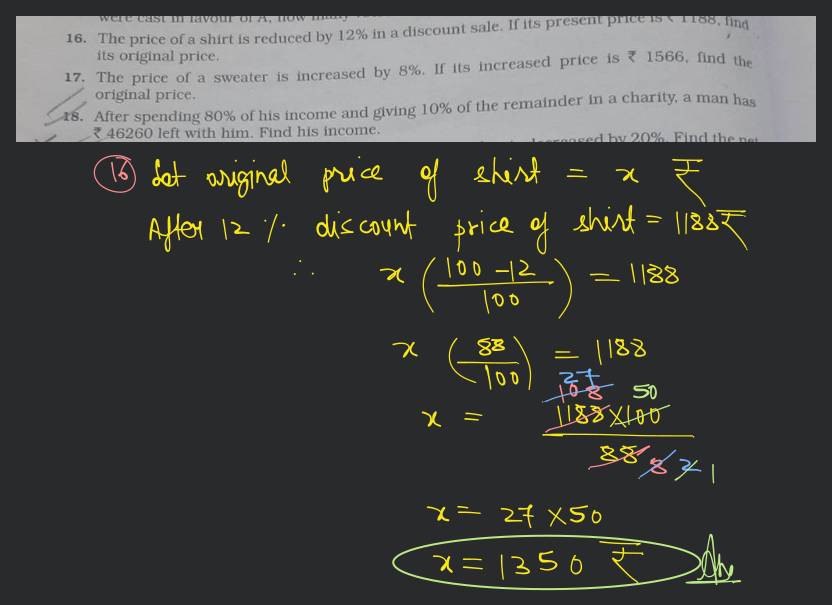 were cast in favour of A, how many
16. The price of a shirt is reduced by 12% in a discount sale. If its present price is ₹ 1188, find
its original price.
17. The price of a sweater is increased by 8%. If its increased price is ₹ 1566, find the
original price.
18. After spending 80% of his income and giving 10% of the remainder in a charity, a man has
₹ 46260 left with him. Find his income.
by 20%. Find the net
16 Let original price of shirt = x ₹
After 12 % discount price of shirt = 1188₹
∴ x (100 - 12 / 100) = 1188
x (88 / 100) = 1188
27
108 50
x = 1188 × 100
88 8 2 1
x = 27 × 50
x = 1350 ₹ Ans